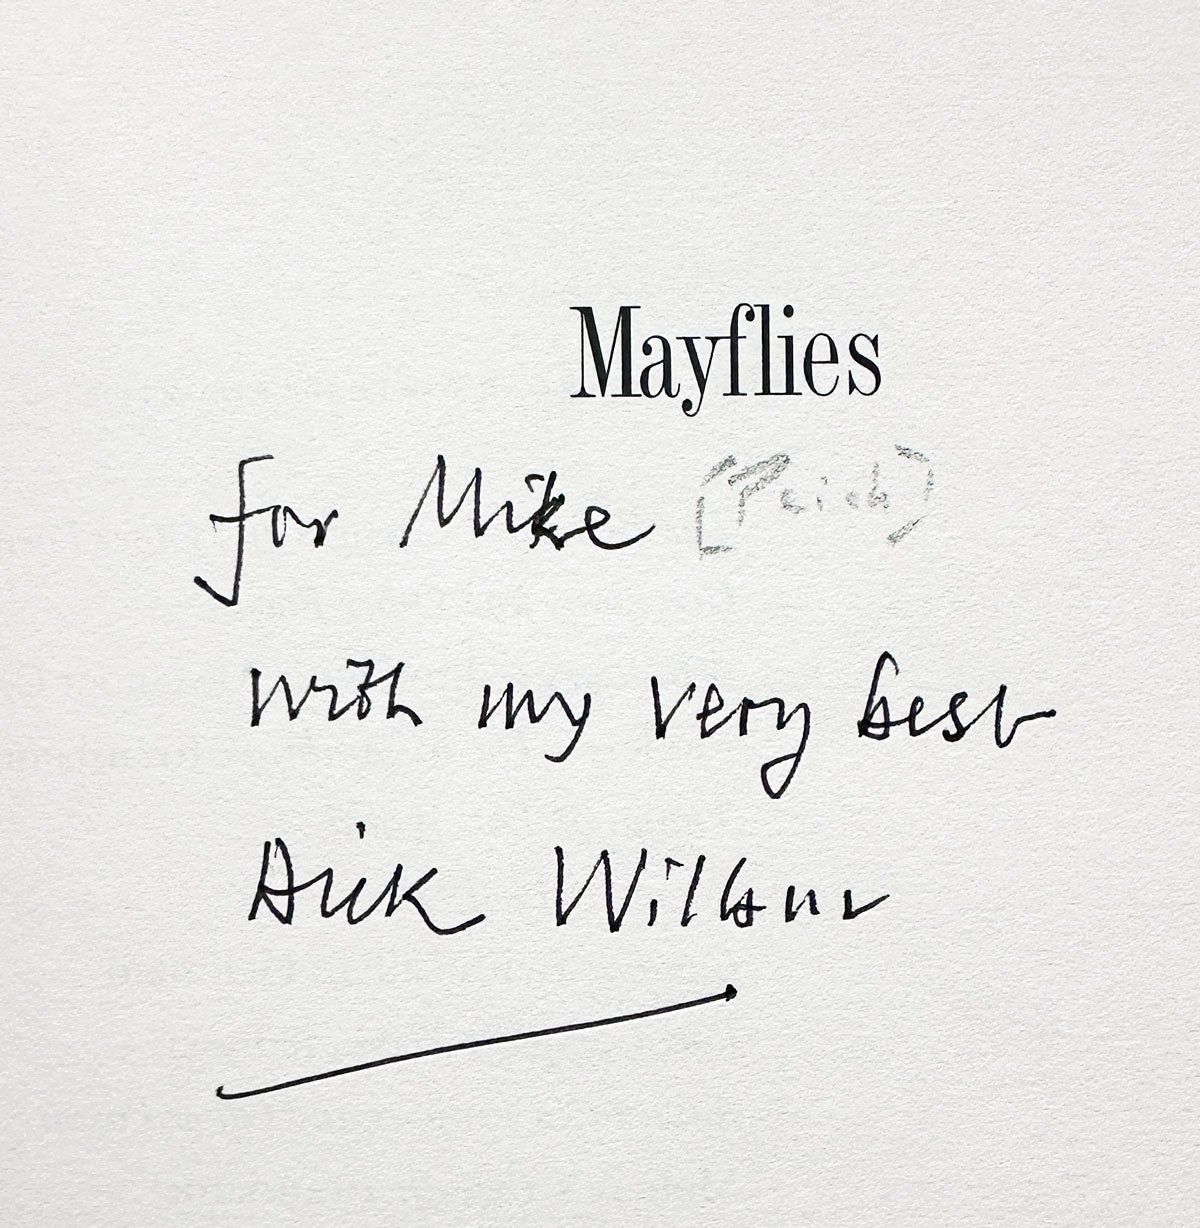 Mayflies
for Mike
with my very best
Dick Wilbur